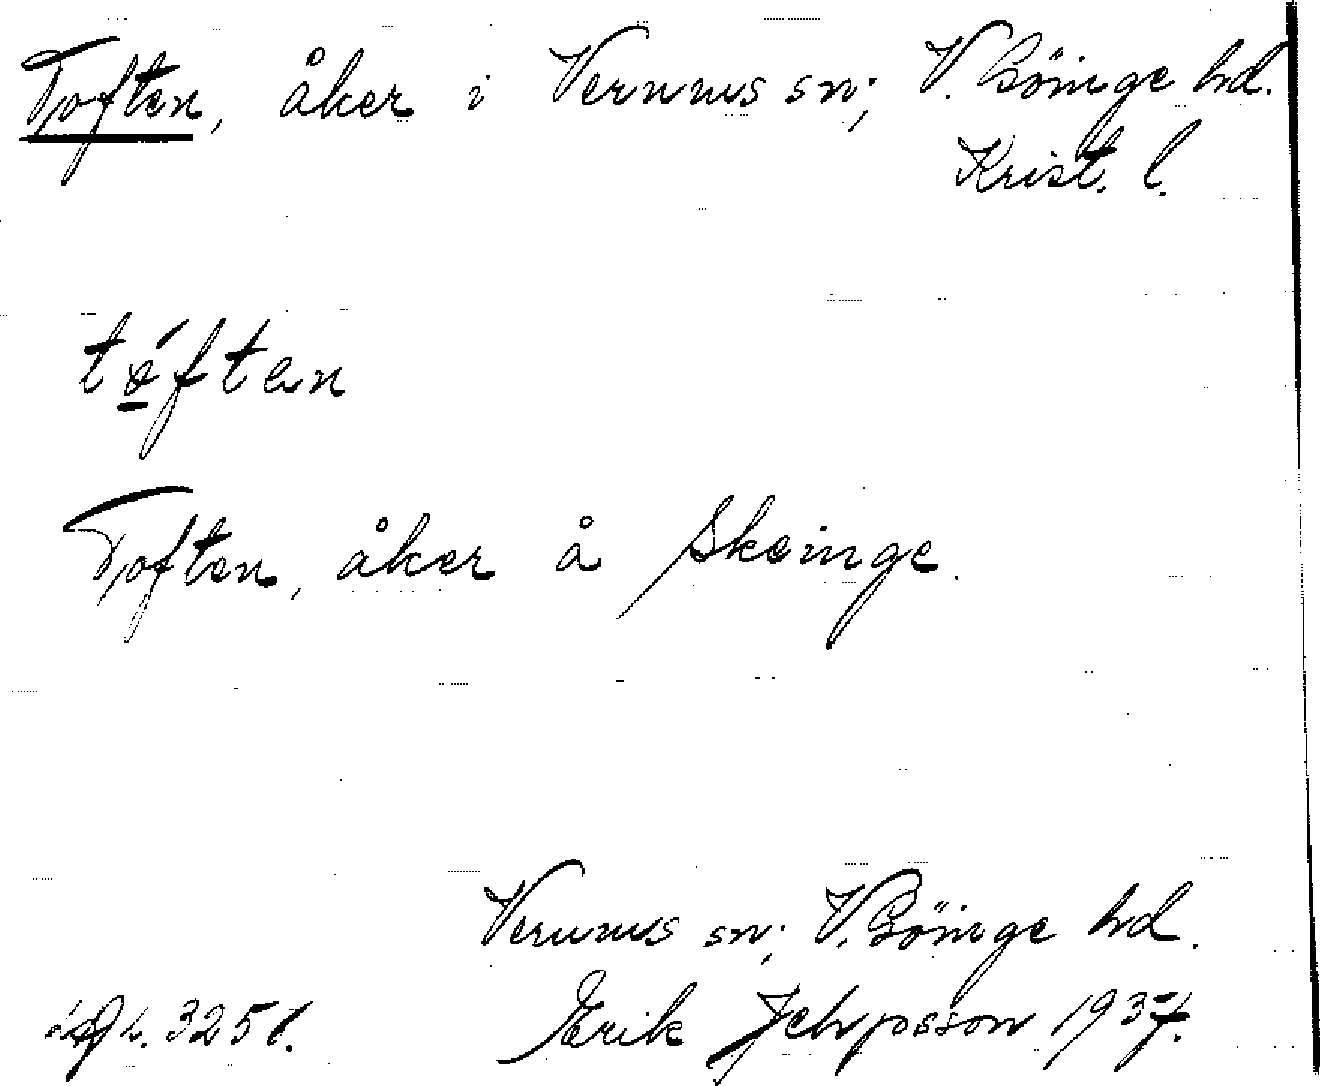 Toften, åker i Verums sn; V. Göinge hd.
Krist. l.
tóften
Toften, åker å Skeinge.
Verums sn; V. Göinge hd.
3251. Erik Jehpsson 1937.